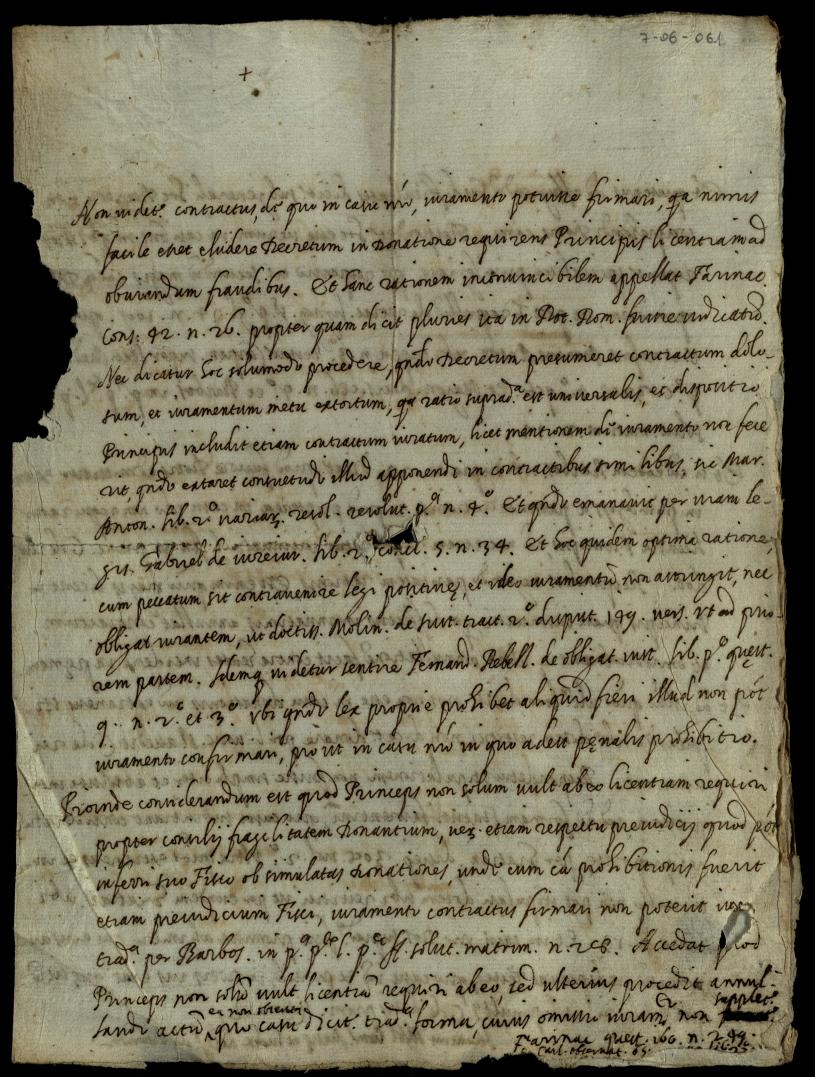 7-06-061
+
Non videt.r contractus, de quo in casu nro, iuramento potuisse firmari, qa nimis
facile esset eludere Decretum in Donatione requirens Principis licentiam ad
obviandum fraudibus. Et hanc rationem invincibilem appellat Farinac.
cons: 42. n. 26. propter quam dicit pluries ita in Rot. Rom. fuisse iudicatũ.
Nec dicatur hoc solumodo procedere, qndo Decretum presumeret contractum dolo-
sum, et iuramentum metu extortum, qa ratio suprad.a est universalis, et dispositio
Principis includit etiam contractum iuratum, licet mentionem de iuramento non fece
rit qndo extaret consuetudo illud apponendi in contractibus similibus, sic Mar.
Anton. lib. 2.o variar. resol. resolut. p.a n. 4.o Et qndo emanavit per viam le-
gis. Gabriel de iureiur. lib. 2.o concl. 5. n. 34. Et hoc quidem optima ratione,
cum peccatum sit contravenire legi positivę, et ideo iuramentũ non astringit, nec
obligat iurantem, ut doctiss. Molin. de iust. tract. 2.o disput. 149. vers. Ut ad prio-
rem partem. Idemq videtur sentire Fernand. Rebell. de obligat. iust. lib. p.o quęst.
9. n. 2.o et 3.o ubi qndo lex proprie prohibet aliquid fieri illud non põt
iuramento confirmari, prout in casu nro in quo adest pęnalis prohibitio.
Proinde considerandum est quod Princeps non solum vult ab eo licentiam requiri
propter consilij fragilitatem Donantium, ver. etiam respectu preiudicij quod põt
inferri suo Fisco ob simulatas Donationes, unde cum cã prohibitionis fuerit
etiam preiudicium Fisci, iuramento contractus firmari non poterit iux.
trad.a per Barbos. in p.a p.te l. p.e ff. solut. matrim. n. 208. Accedat quod
Princeps non solũ vult licentiã requiri ab eo, sed ulterius procedit annul-
lando actũ ea non obtenta, quo casu dicit. trad. forma, cuius omissio iuram.to non supplet.r
Farinac. quest. 160. n. 289.
Carl. observat. 65.